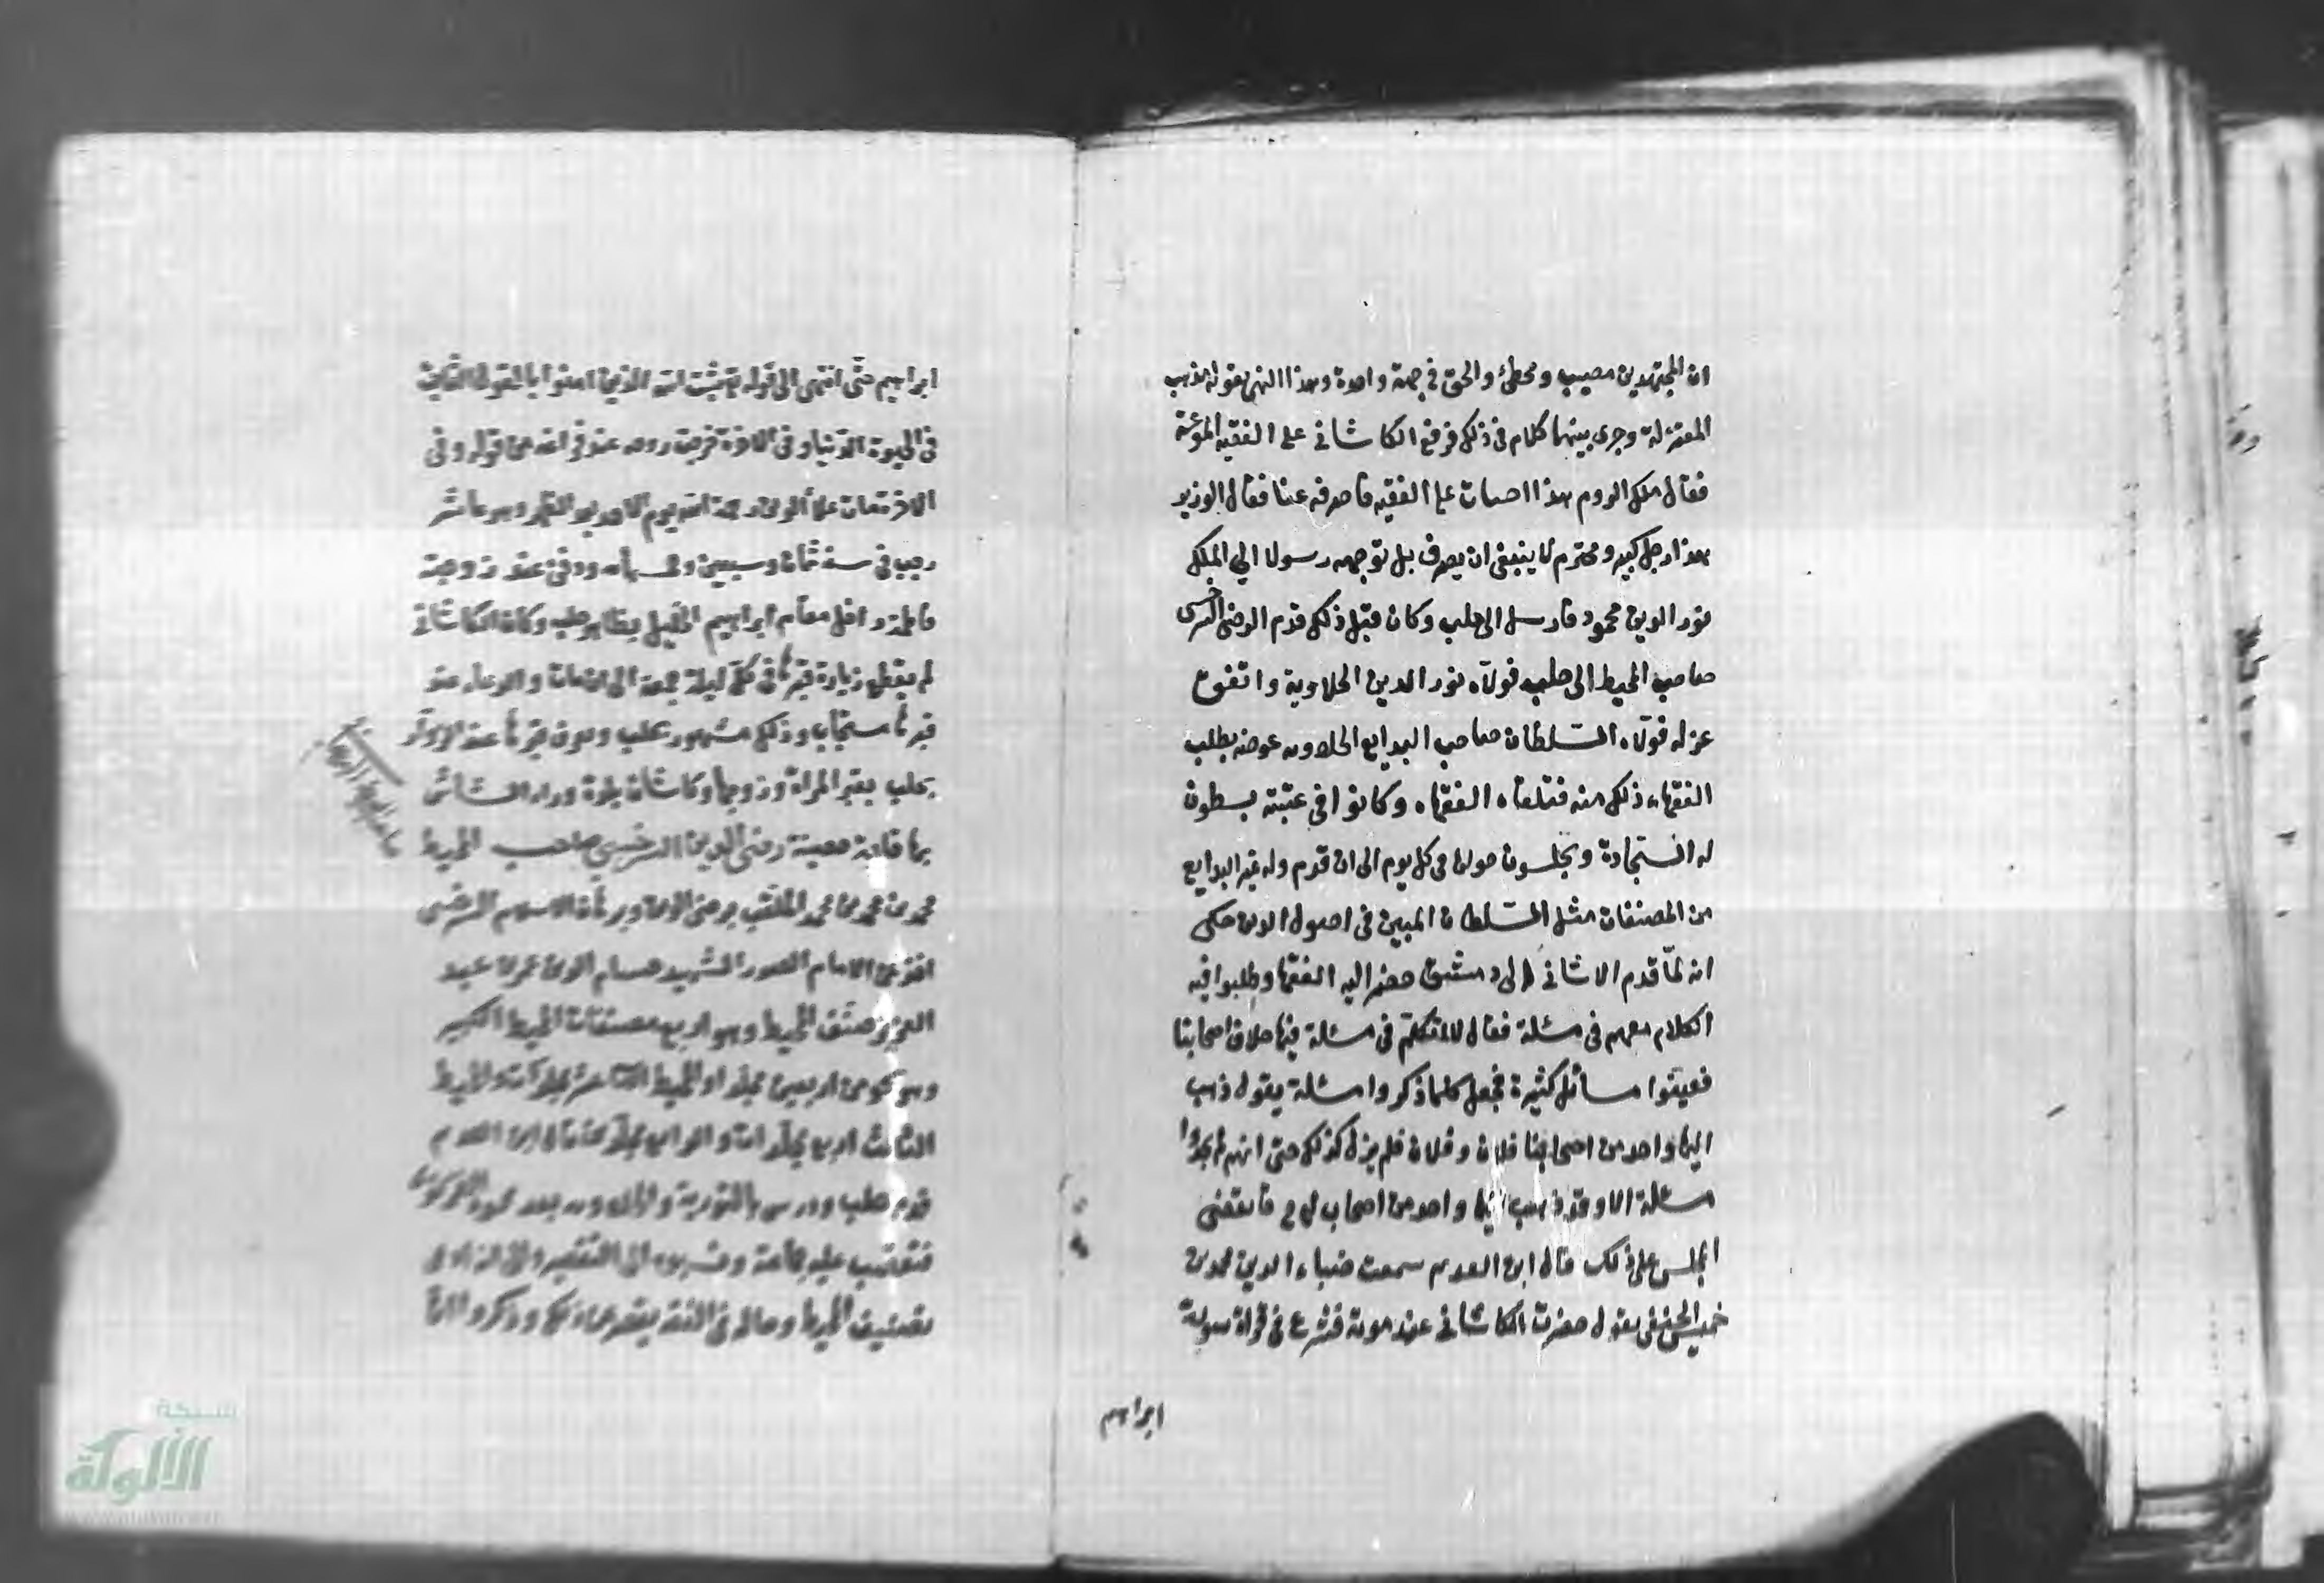 ان المجتهدين مصيب ومخطئ والحق في جهة واحدة وهذا الذي يقوله مذهب
المعتزلة وجرى بينهما كلام في ذلك فرفع الكاشاني على الفقيه المقرعة
فقال ملك الروم هذا افتات على الفقيه فاصرفه عنا فقال الوزير
هذا رجل كبير ومحترم لا ينبغي ان يصرف بل توجهه رسولا الي الملك
نور الدين محمود فارسل الى حلب وكان قبل ذلك قدم الرضى السرخسى
صاحب المحيط الى حلب فولاه نور الدين الحلاوية واتفق
عزله فولاه السلطان صاحب البدايع الحلاويه عوضه بطلب
الفقهاء ذلك منه فتلقاه الفقهاء وكانوا في غيبته يبسطون
له السجادة ويجلسون حولها في كل يوم الى ان قدم وله غير البدايع
من المصنفات مثل السلطان المبين في اصول الدين حكى
انه لما قدم الاشانى الى دمشق حضر اليه الفقها وطلبوا فيه
الكلام معهم في مسئلة فقال لا اتكلم في مسئلة فيها خلاف اصحابنا
فعينوا مسائل كثيرة فجعل كلما ذكروا مسئلة يقول ذهب
اليها واحد من اصحابنا فلان وفلان فلم يزل كذلك حتى انهم لم يجدوا
مسئلة الا وقد ذهب اليها واحد من اصحاب ابي ح فانقضى
المجلس على ذلك قال ابن العديم سمعت ضياء الدين محمد بن
خميس الحنفى يقول حضرت الكاشانى عند موته فشرع في قراة سورة
ابراهيم
ابراهيم حتى انتهى الى قوله يثبت الله الذين امنوا بالقول الثابت
في الحيوة الدنيا وفي الاخرة خرجت روحه عند فراغه من قوله وفي
الاخرة مات علاء الدين رحمه الله يوم الاحد بعد الظهر وهو عاشر
رجب في سنة ثمان وسبعين وخمسمائة ودفن عند زوجته
فاطمة داخل مقام ابراهيم الخليل بظاهر حلب وكان الكاشاني
لم يقطع زيارة قبرها في كل ليلة جمعة الى ان مات والدعاء عند
قبرها مستجاب وذلك مشهور بحلب ويعرف قبرها عند الزوار
بحلب بقبر المراة وزوجها وكاشان بلدة وراء الشاش
بها قلعة حصينة رضى الدين السرخسي صاحب المحيط
محمد بن محمد بن محمد الملقب برضى الدين وبرهان الاسلام السرخسى
اخذ عن الامام الصدر الشهيد حسام الدين عمر بن عبد
العزيز صنف المحيط وهو اربع مصنفات المحيط الكبير
وهو نحو من اربعين مجلدا والمحيط الثاني عشر مجلدات والمحيط
الثالث اربع مجلدات والرابع مجلدين قال ابن العديم
قدم حلب ودرس بالنورية والحلاويه بعد محمود الغزنوي
فتعصب عليه جماعة ونسبوه الى التقصير وانه ادعى
تصنيف المحيط وحاله في الفقه يقصر عن ذلك وذكروا انها